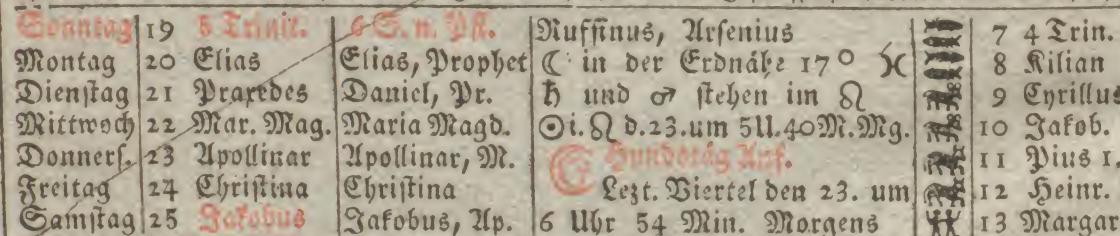 Sonntag 19 5 Trinit. 6 S. n. Pfi. Ruffinus, Arsenius 7 4 Trin.
Montag 20 Elias Elias, Prophet ☾ in der Erdnähe 17° ♓ 8 Kilian
Dienstag 21 Praxedes Daniel, Pr. ♄ und ♂ stehen im ♌ 9 Cyrillus
Mittwoch 22 Mar. Mag. Maria Magd. ☉ i. ♌ d. 23. um 5 U. 40 M. Mg. 10 Jakob.
Donners. 23 Apollinar Apollinar, M. Hundstäg Anf. 11 Pius 1.
Freitag 24 Christina Christina ☾ Lezt. Viertel den 23. um 12 Heinr.
Samstag 25 Jakobus Jakobus, Ap. 6 Uhr 54 Min. Morgens 13 Margar